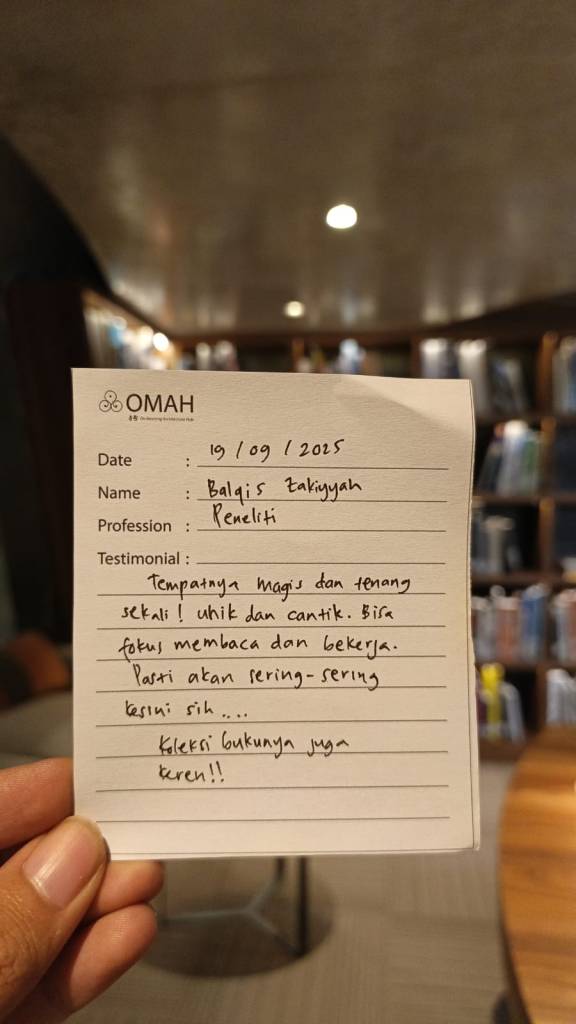 OMAH
Date : 19 / 09 / 2025
Name : Balqis Zakiyyah
Profession : Peneliti
Testimonial :
Tempatnya magis dan tenang
sekali! unik dan cantik. Bisa
fokus membaca dan bekerja.
Pasti akan sering-sering
kesini sih....
Koleksi bukunya juga
keren!!